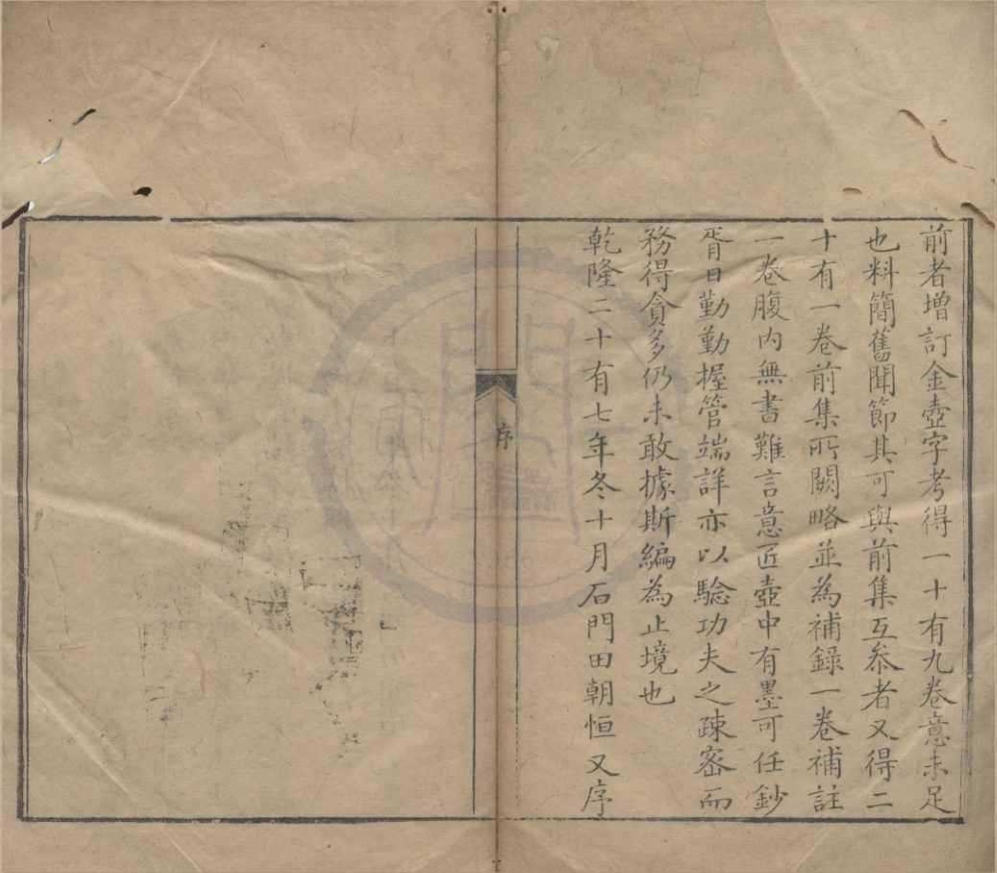 前者增訂金壺字考得一十有九卷意未足
也料簡舊聞節其可與前集互叅者又得二
十有一卷前集所闕略並為補錄一卷補註
一卷腹內無書難言意匠壺中有墨可任鈔
胥日勤勤握管端詳亦以驗功夫之疎密而
務得貪多仍未敢據斯編為止境也
乾隆二十有七年冬十月石門田朝恒又序
序